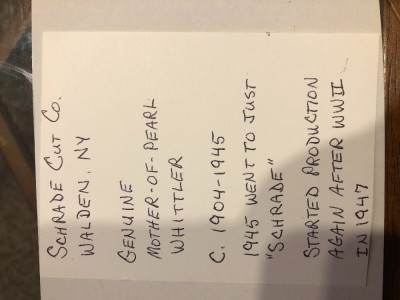 SCHRADE CUT CO.
WALDEN, NY
GENUINE
MOTHER-OF-PEARL
WHITTLER
C. 1904-1945
1945 WENT TO JUST
"SCHRADE"
STARTED PRODUCTION
AGAIN AFTER WWII
IN 1947